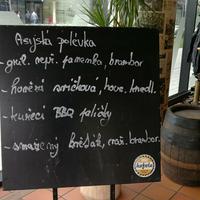 Asijská polévka
- gril. vepř. panenka, brambor
- hovězí svíčková, hous. knedl.
- kuřecí BBQ paličky
- smažený hřešlák, maš. brambor.